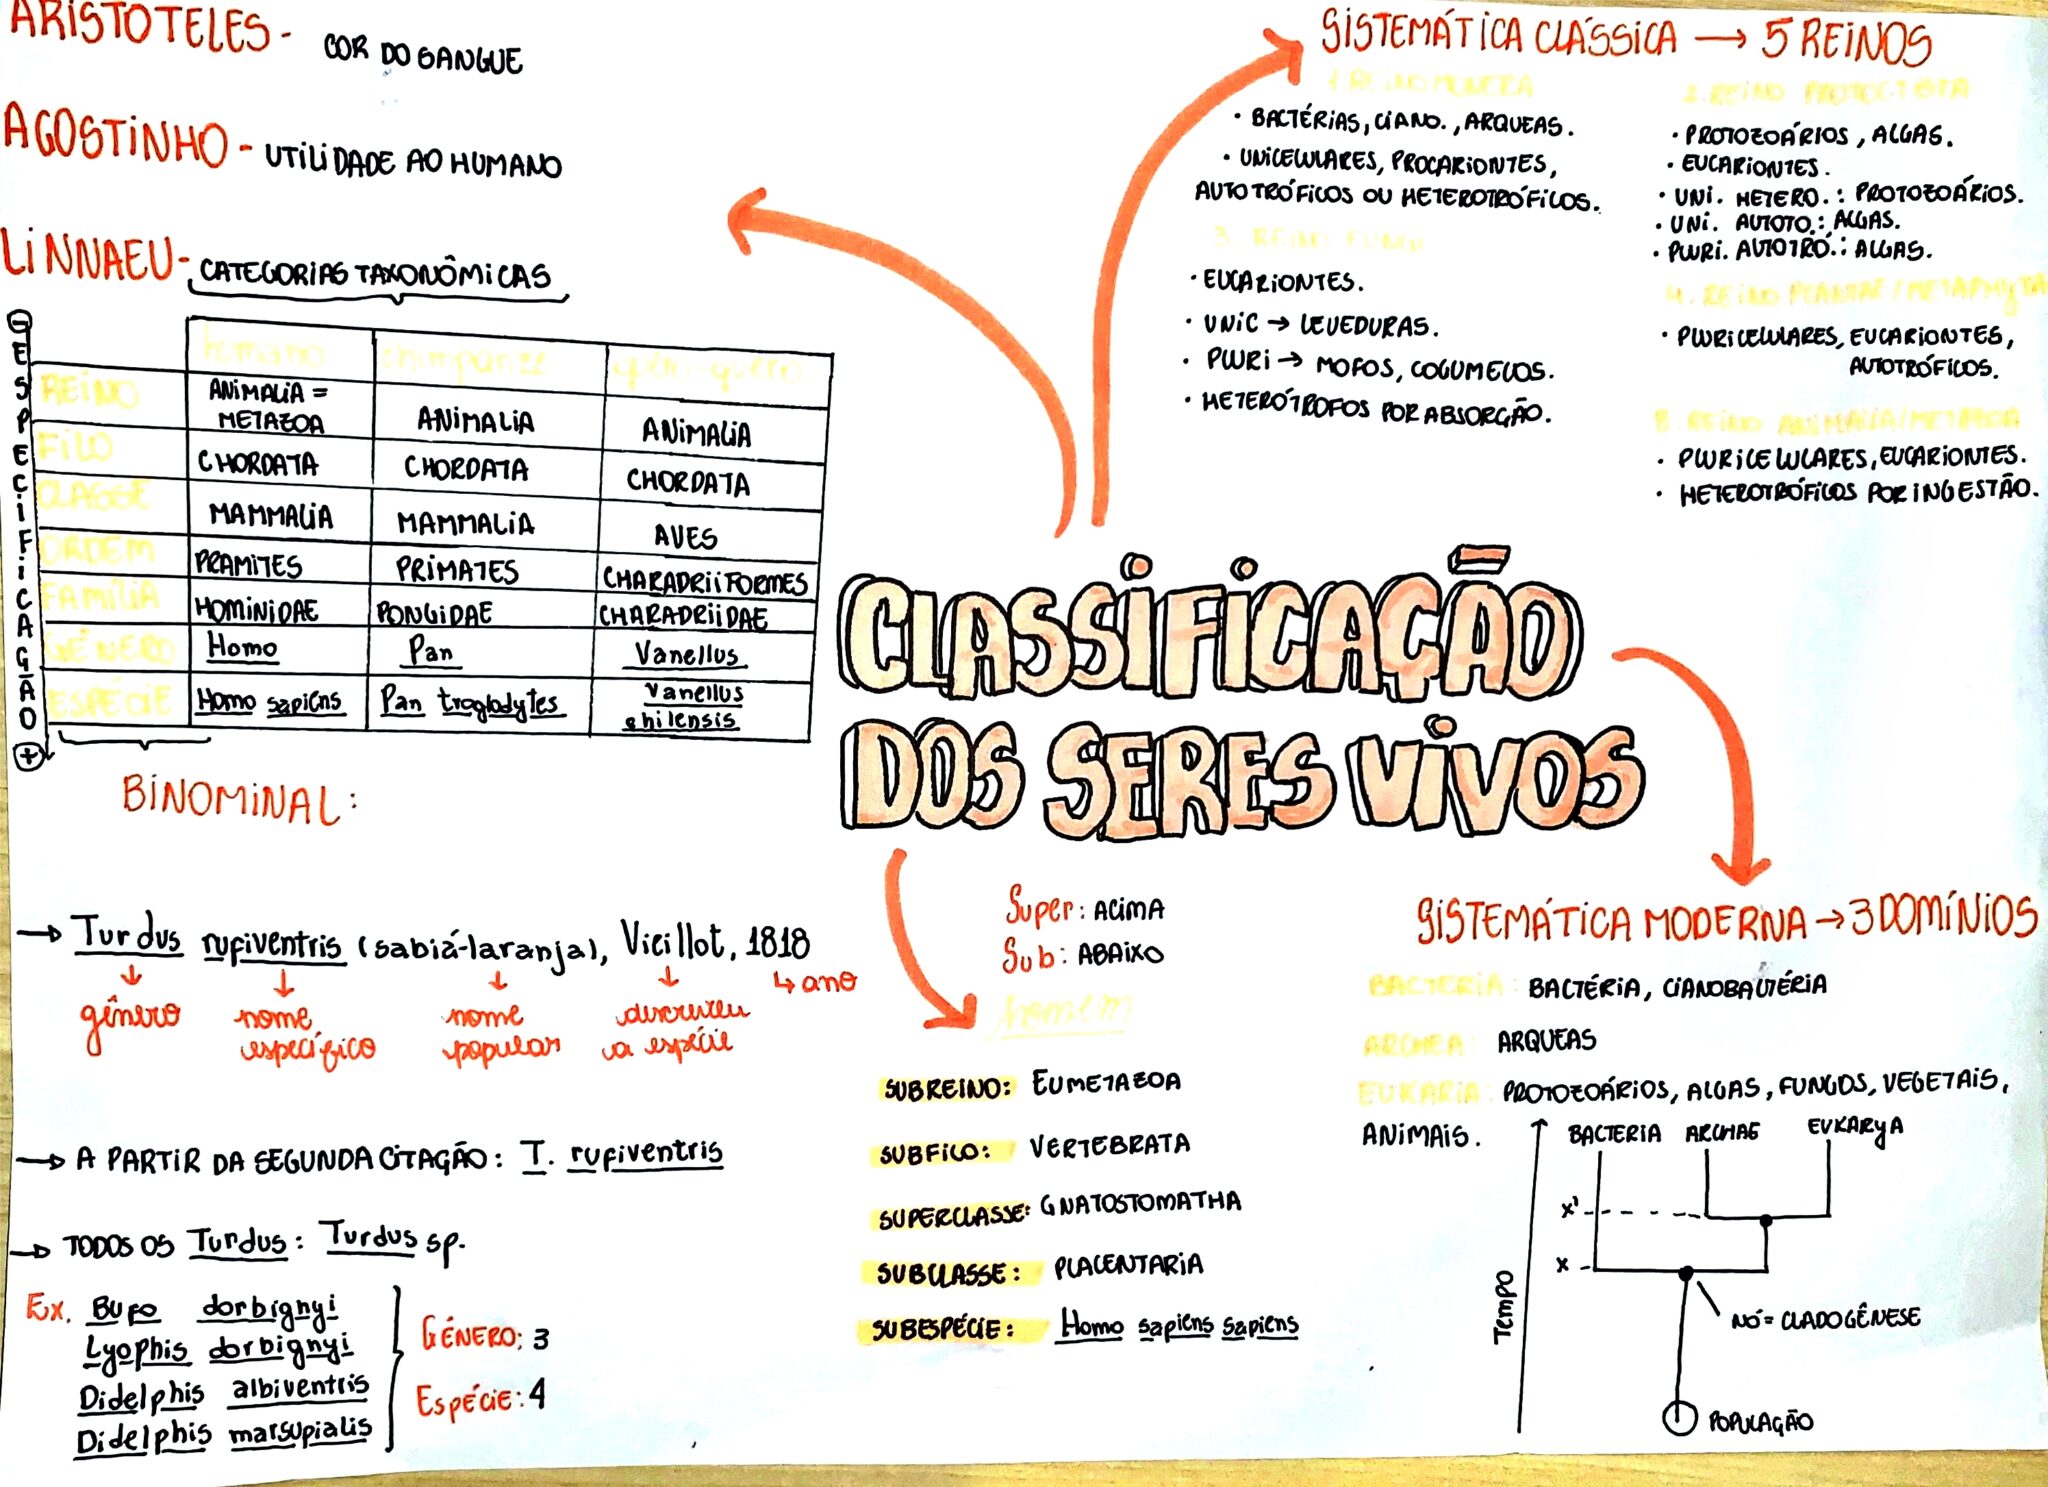 ARISTOTELES - COR DO SANGUE
AGOSTINHO - UTILIDADE AO HUMANO
LINNAEU - CATEGORIAS TAXONÔMICAS
- ESPECIFICAÇÃO +
humano chimpanze quero-quero
REINO ANIMALIA = METAZOA ANIMALIA ANIMALIA
FILO CHORDATA CHORDATA CHORDATA
CLASSE MAMMALIA MAMMALIA AVES
ORDEM PRAMITES PRIMATES CHARADRIIFORMES
FAMÍLIA HOMINIDAE PONGIDAE CHARADRIIDAE
GÊNERO Homo Pan Vanellus
ESPÉCIE Homo sapiens Pan troglodytes Vanellus chilensis
BINOMINAL:
→ Turdus rufiventris (sabiá-laranja), Vieillot, 1818
↳ ano
gênero nome específico nome popular descreveu a espécie
→ A PARTIR DA SEGUNDA CITAÇÃO: T. rufiventris
→ TODOS OS Turdus: Turdus sp.
Ex. Bufo dorbignyi
Lyophis dorbignyi
Didelphis albiventris
Didelphis marsupialis
GÊNERO: 3
ESPÉCIE: 4
CLASSIFICAÇÃO
DOS SERES VIVOS
SISTEMÁTICA CLÁSSICA → 5 REINOS
1. REINO MONERA
• BACTÉRIAS, CIANO., ARQUEAS.
• UNICELULARES, PROCARIONTES,
AUTOTRÓFICOS OU HETEROTRÓFICOS.
2. REINO PROTOCTISTA
• PROTOZOÁRIOS, ALGAS.
• EUCARIONTES.
• UNI. HETERO.: PROTOZOÁRIOS.
• UNI. AUTOTO.: ALGAS.
• PLURI. AUTOTRÓ.: ALGAS.
3. REINO FUNGI
• EUCARIONTES.
• UNIC → LEVEDURAS.
• PLURI → MOFOS, COGUMELOS.
• HETERÓTROFOS POR ABSORÇÃO.
4. REINO PLANTAE/METAPHYTA
• PLURICELULARES, EUCARIONTES,
AUTOTRÓFICOS.
5. REINO ANIMALIA/METAZOA
• PLURICELULARES, EUCARIONTES.
• HETEROTRÓFICOS POR INGESTÃO.
Super: ACIMA
Sub: ABAIXO
homem
SUBREINO: EUMETAZOA
SUBFILO: VERTEBRATA
SUPERCLASSE: GNATOSTOMATHA
SUBCLASSE: PLACENTARIA
SUBESPÉCIE: Homo sapiens sapiens
SISTEMÁTICA MODERNA → 3 DOMÍNIOS
BACTERIA: BACTÉRIA, CIANOBACTÉRIA
ARCHEA: ARQUEAS
EUKARIA: PROTOZOÁRIOS, ALGAS, FUNGOS, VEGETAIS,
ANIMAIS.
BACTERIA ARCHAE EUKARYA
x'
x
TEMPO
NÓ = CLADOGÊNESE
POPULAÇÃO